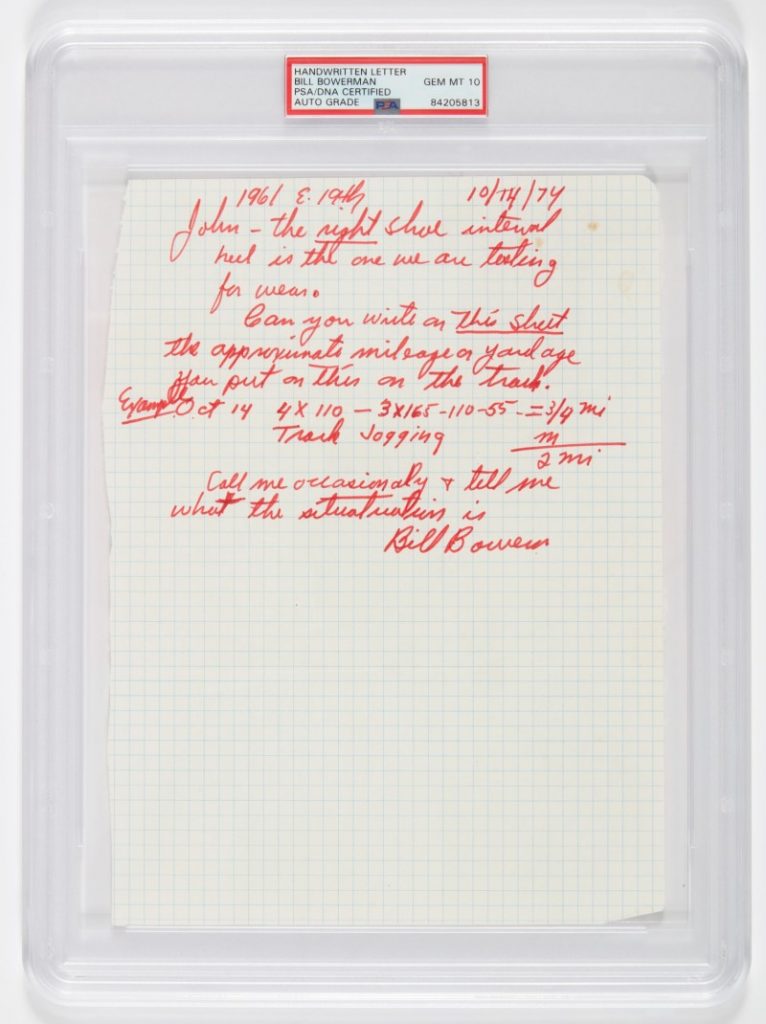 HANDWRITTEN LETTER
BILL BOWERMAN GEM MT 10
PSA/DNA CERTIFIED
AUTO GRADE PSA 84205813
1961 E. 19th 10/14/74
John - the right shoe internal
heel is the one we are testing
for wear.
Can you write on this sheet
the approximate mileage or yardage
you put on this on the track.
Example Oct 14 4 X 110 - 3X165-110-55 - = 3/4 mi
Track Jogging m
2 mi
Call me occasionaly & tell me
what the situatuation is
Bill Bowerm